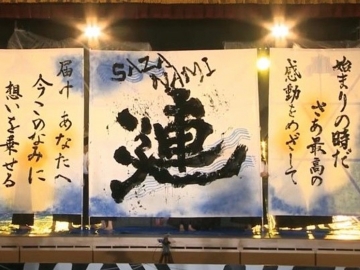 始まりの時だ
さあ最高の
感動をめざして
SAZA
NAMI
漣
届け あなたへ
今このなみに
想いを乗せる